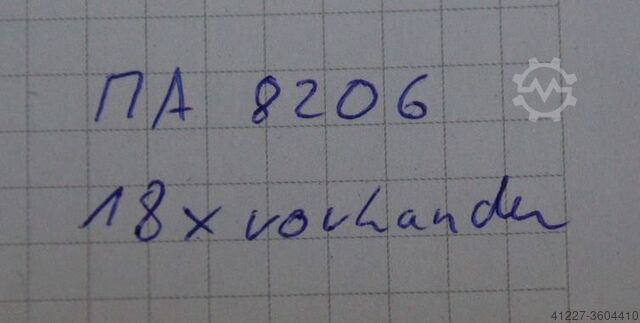 ПА 8206
18x vorhanden
41227-3604410